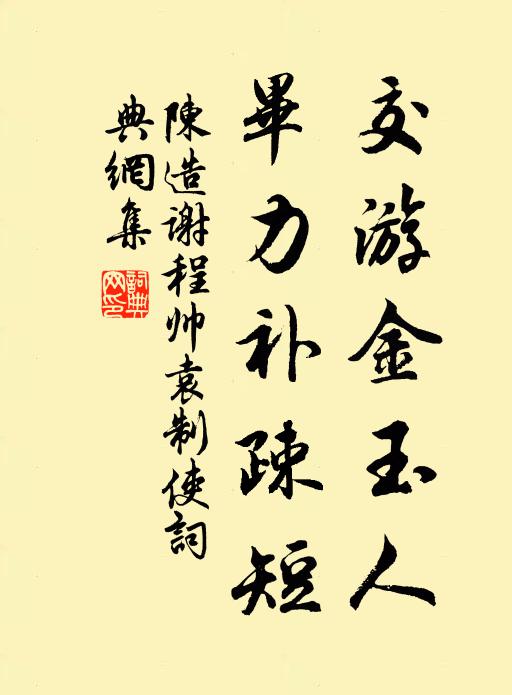 交游金玉人
畢力补疎短
陳造谢程帅袁制使詞
典網集
詞典網印